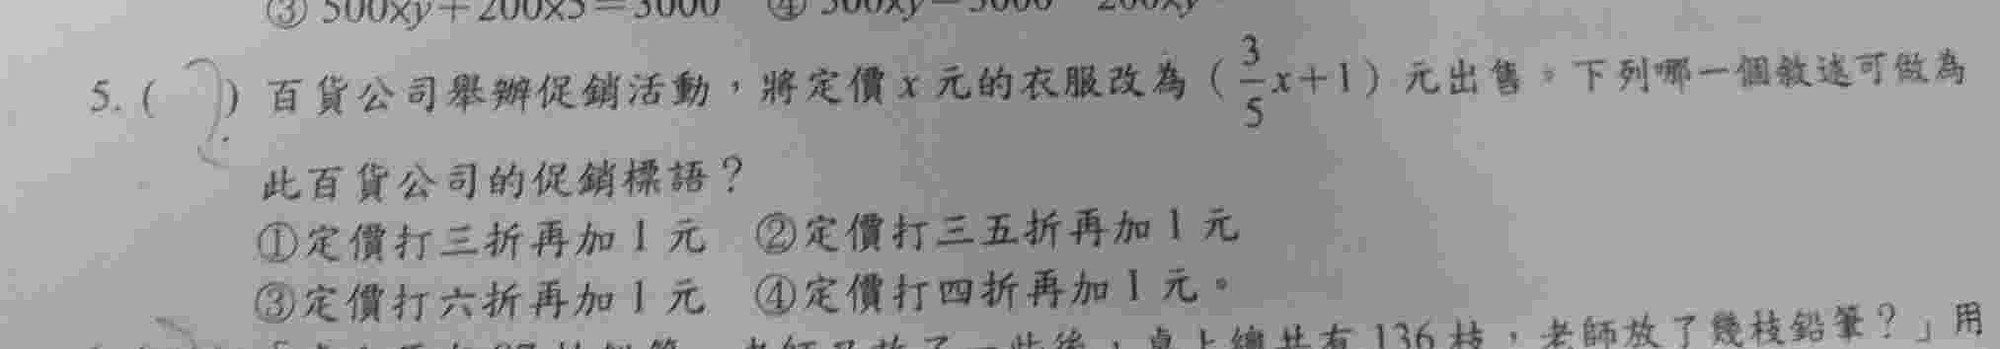 ③ 500xy＋200x5＝3000　④ 500xy－3000　200xy
5. (　) 百貨公司舉辦促銷活動，將定價 x 元的衣服改為（3/5x＋1）元出售。下列哪一個敘述可做為
此百貨公司的促銷標語？
①定價打三折再加 1 元　②定價打三五折再加 1 元
③定價打六折再加 1 元　④定價打四折再加 1 元。
一些後，桌上總共有 136 枝，老師放了幾枝鉛筆？」用